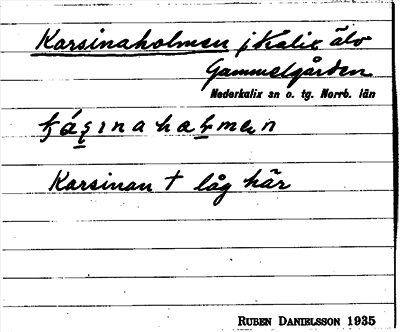 Karsinaholmen i Kalix älv
Gammelgården
Nederkalix sn o. tg. Norrb. län
Karsinan † låg här
RUBEN DANIELSSON 1935